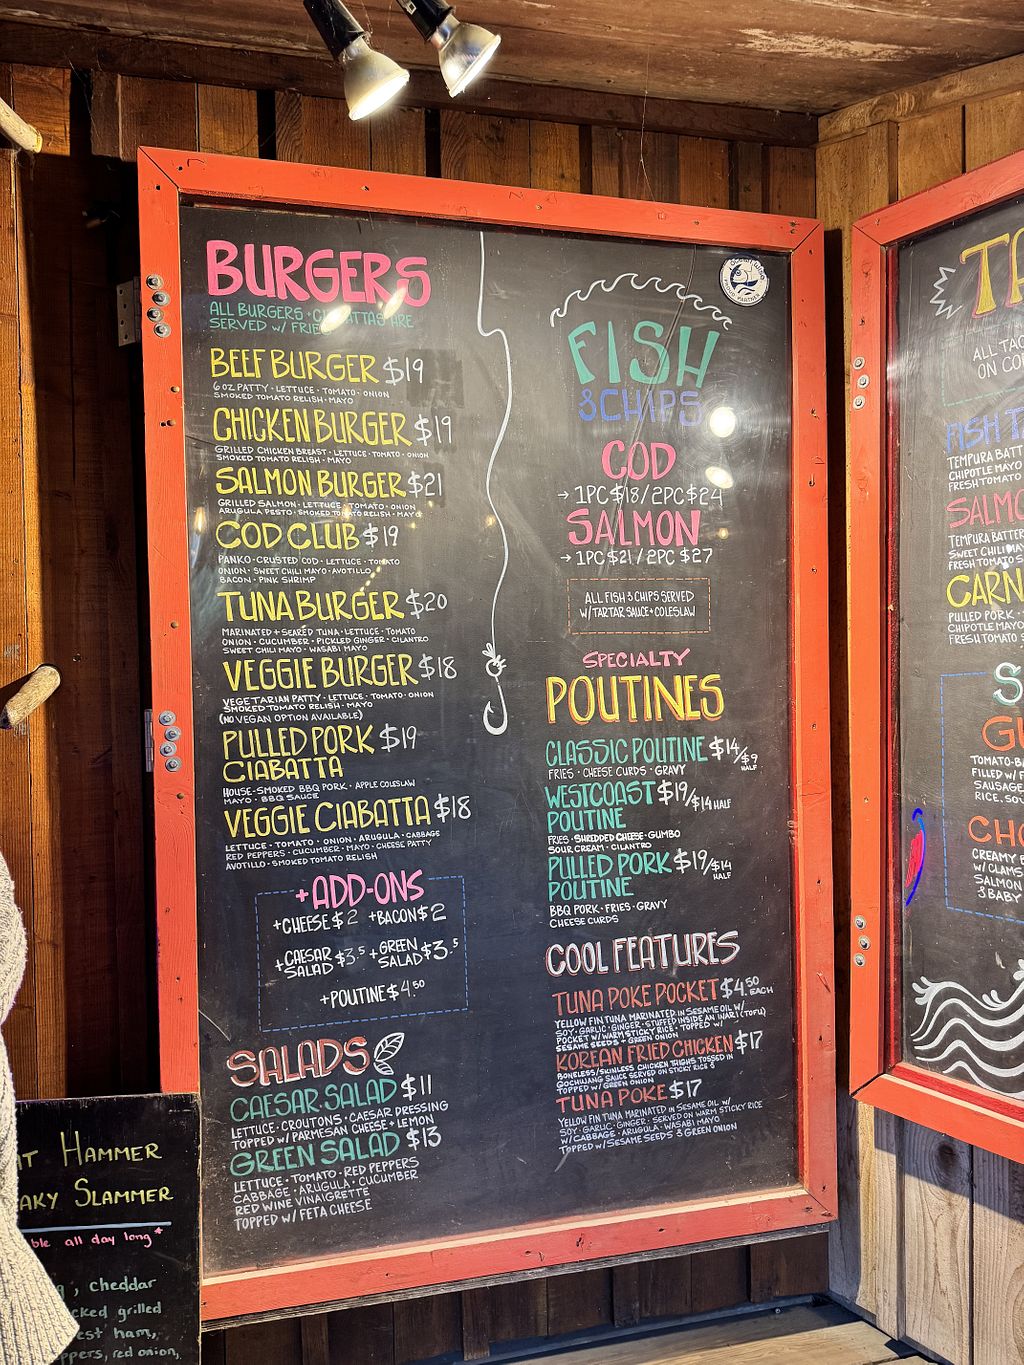 BURGERS
ALL BURGERS + CIABATTAS ARE
SERVED W/ FRIES
BEEF BURGER $19
6 OZ PATTY · LETTUCE · TOMATO · ONION
SMOKED TOMATO RELISH · MAYO
CHICKEN BURGER $19
GRILLED CHICKEN BREAST · LETTUCE · TOMATO · ONION
SMOKED TOMATO RELISH · MAYO
SALMON BURGER $21
GRILLED SALMON · LETTUCE · TOMATO · ONION
ARUGULA PESTO · SMOKED TOMATO RELISH · MAYO
COD CLUB $19
PANKO-CRUSTED COD · LETTUCE · TOMATO
ONION · SWEET CHILI MAYO · AVOTILLO
BACON · PINK SHRIMP
TUNA BURGER $20
MARINATED + SEARED TUNA · LETTUCE · TOMATO
ONION · CUCUMBER · PICKLED GINGER · CILANTRO
SWEET CHILI MAYO · WASABI MAYO
VEGGIE BURGER $18
VEGETARIAN PATTY · LETTUCE · TOMATO · ONION
SMOKED TOMATO RELISH · MAYO
(NO VEGAN OPTION AVAILABLE)
PULLED PORK $19
CIABATTA
HOUSE-SMOKED BBQ PORK · APPLE COLESLAW
MAYO · BBQ SAUCE
VEGGIE CIABATTA $18
LETTUCE · TOMATO · ONION · ARUGULA · CABBAGE
RED PEPPERS · CUCUMBER · MAYO · CHEESE PATTY
AVOTILLO · SMOKED TOMATO RELISH
+ADD-ONS
+CHEESE $2 +BACON $2
+CAESAR SALAD $3.5 +GREEN SALAD $3.5
+POUTINE $4.50
SALADS
CAESAR SALAD $11
LETTUCE · CROUTONS · CAESAR DRESSING
TOPPED W/ PARMESAN CHEESE + LEMON
GREEN SALAD $13
LETTUCE · TOMATO · RED PEPPERS
CABBAGE · ARUGULA · CUCUMBER
RED WINE VINAIGRETTE
TOPPED W/ FETA CHEESE
FISH
& CHIPS
COD
→ 1PC $18 / 2PC $24
SALMON
→ 1PC $21 / 2PC $27
ALL FISH & CHIPS SERVED
W/ TARTAR SAUCE + COLESLAW
SPECIALTY
POUTINES
CLASSIC POUTINE $14/$9 HALF
FRIES · CHEESE CURDS · GRAVY
WESTCOAST $19/$14 HALF
POUTINE
FRIES · SHREDDED CHEESE · GUMBO
SOUR CREAM · CILANTRO
PULLED PORK $19/$14 HALF
POUTINE
BBQ PORK · FRIES · GRAVY
CHEESE CURDS
COOL FEATURES
TUNA POKE POCKET $4.50 EACH
YELLOW FIN TUNA MARINATED IN SESAME OIL W/
SOY · GARLIC · GINGER · STUFFED INSIDE AN INARI (TOFU)
POCKET W/ WARM STICKY RICE · TOPPED W/
SESAME SEEDS + GREEN ONION
KOREAN FRIED CHICKEN $17
BONELESS/SKINLESS CHICKEN THIGHS TOSSED IN
GOCHUJANG SAUCE SERVED ON STICKY RICE &
TOPPED W/ GREEN ONION
TUNA POKE $17
YELLOW FIN TUNA MARINATED IN SESAME OIL W/
SOY · GARLIC · GINGER · SERVED ON WARM STICKY RICE
W/ CABBAGE · ARUGULA · WASABI MAYO
TOPPED W/ SESAME SEEDS & GREEN ONION
ALL TAC
ON CO
FISH T
TEMPURA BATT
CHIPOTLE MAYO
FRESH TOMATO
SALMO
TEMPURA BATTER
SWEET CHILI MAY
FRESH TOMATO S
CARN
PULLED PORK
CHIPOTLE MAYO
FRESH TOMATO
S
GU
TOMATO-BA
FILLED W/ F
SAUSAGE
RICE. SOU
CHO
CREAMY B
W/ CLAMS
SALMON
& BABY
AT HAMMER
AKY SLAMMER
ble all day long*
, cheddar
cked grilled
est ham,
ppers, red onion,